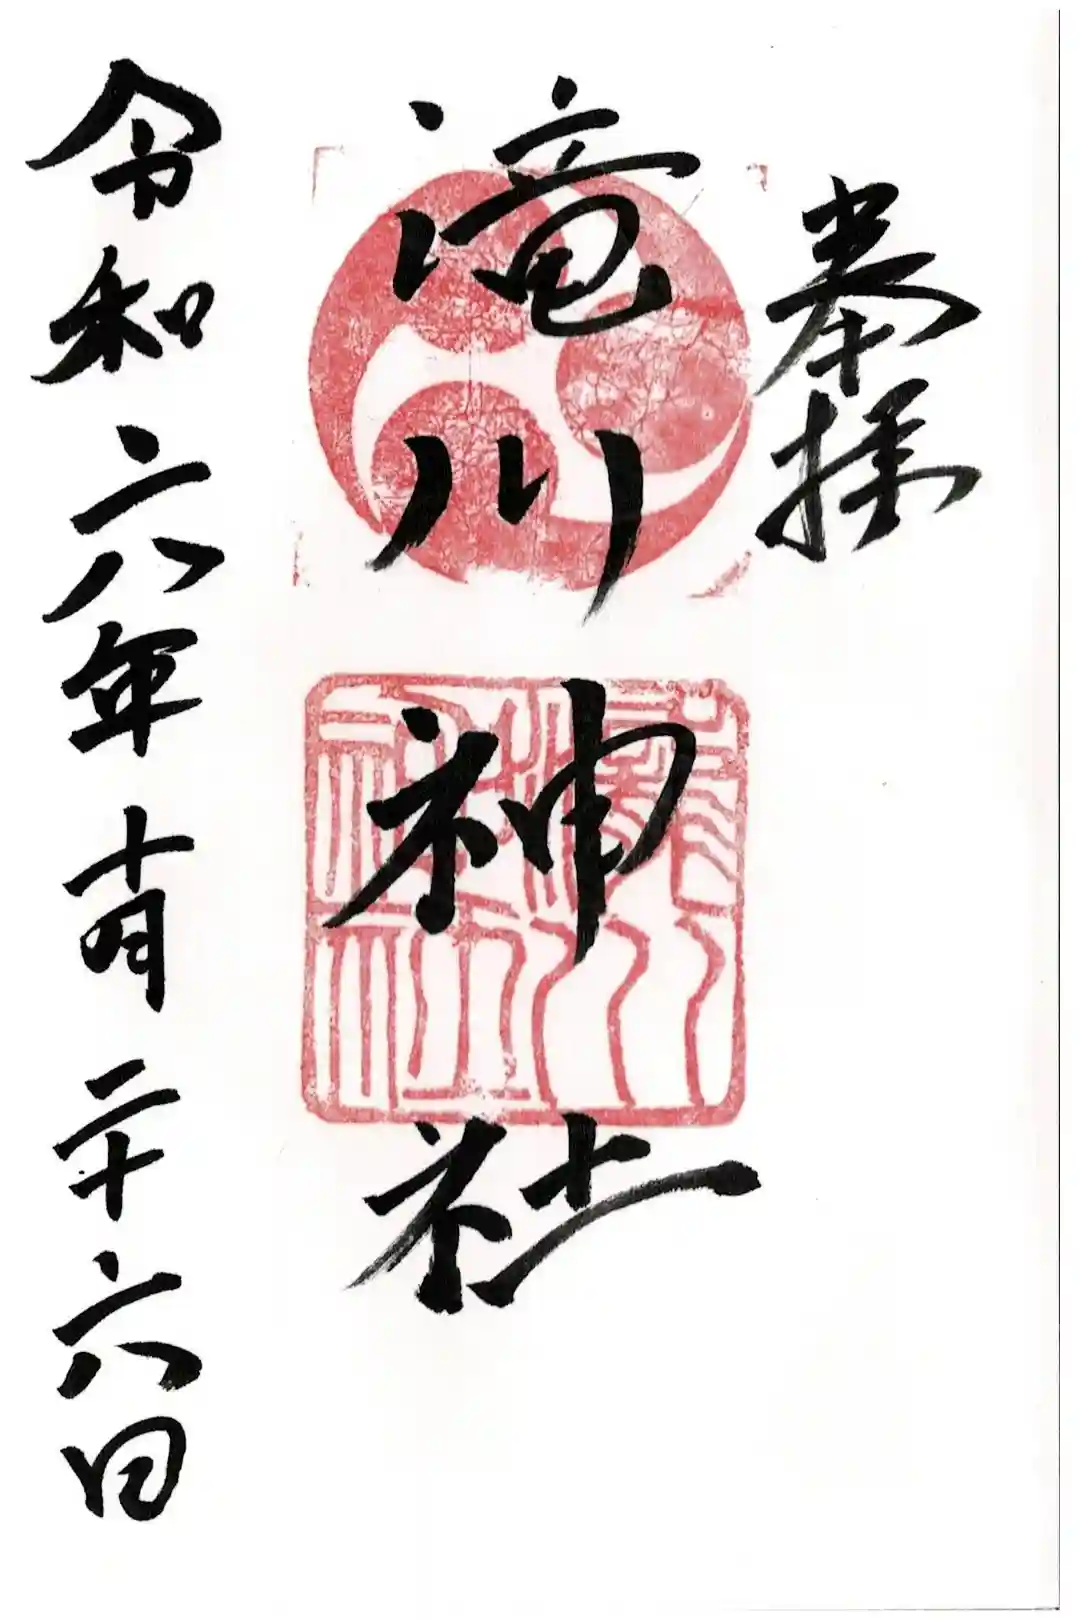 奉拝
滝川神社
瀧川
神社
令和六年十月二十六日